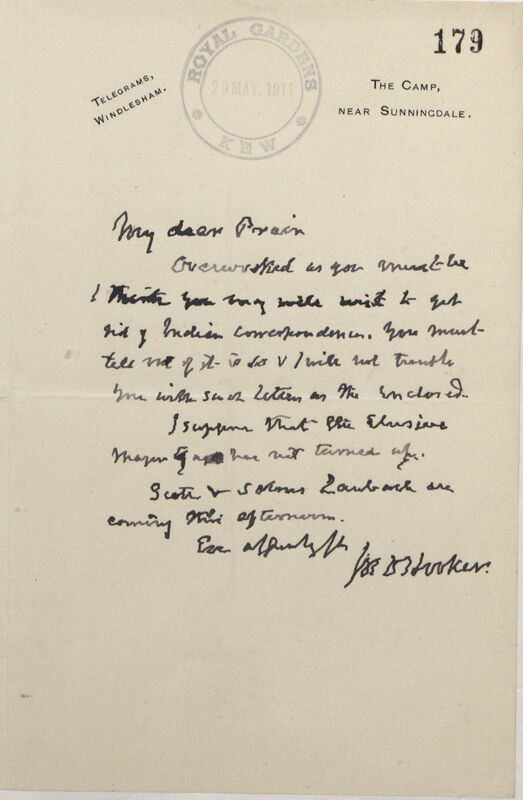 179
ROYAL GARDENS
29 MAY. 1911
KEW
TELEGRAMS,
WINDLESHAM.
THE CAMP,
NEAR SUNNINGDALE.
My dear Prain
Overworked as you must be
I think you may well wish to get
rid of Indian correspondence. You must
tell me if it is so & I will not trouble
you with such letters as the enclosed.
I suppose that the Elusive
has not turned up.
Scott & Solms Laubach are
coming this afternoon.
Ever affectly yrs
Jos D Hooker.